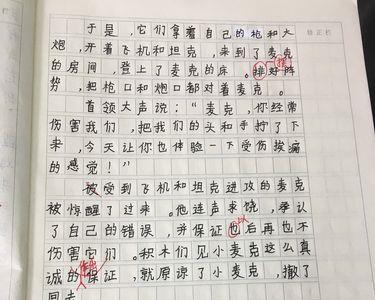 于是，它们拿着自己的枪和大
炮，开着飞机和坦克，来到了麦克
的房间，登上了麦克的床。排好阵
势，把枪口和炮口都对着麦克。
首领大声说：“麦克，你经常
伤害我们，把我们的头和手拧了下
来，今天让你也体验一下受伤挨痛
的感觉！”
被受到飞机和坦克进攻的麦克
被惊醒了过来。他连声求饶，承认
了自己的错误，并保证也以后再也不
伤害它们。积木们见小麦克这么真
诚的保证，就原谅了小麦克，撤了
回去